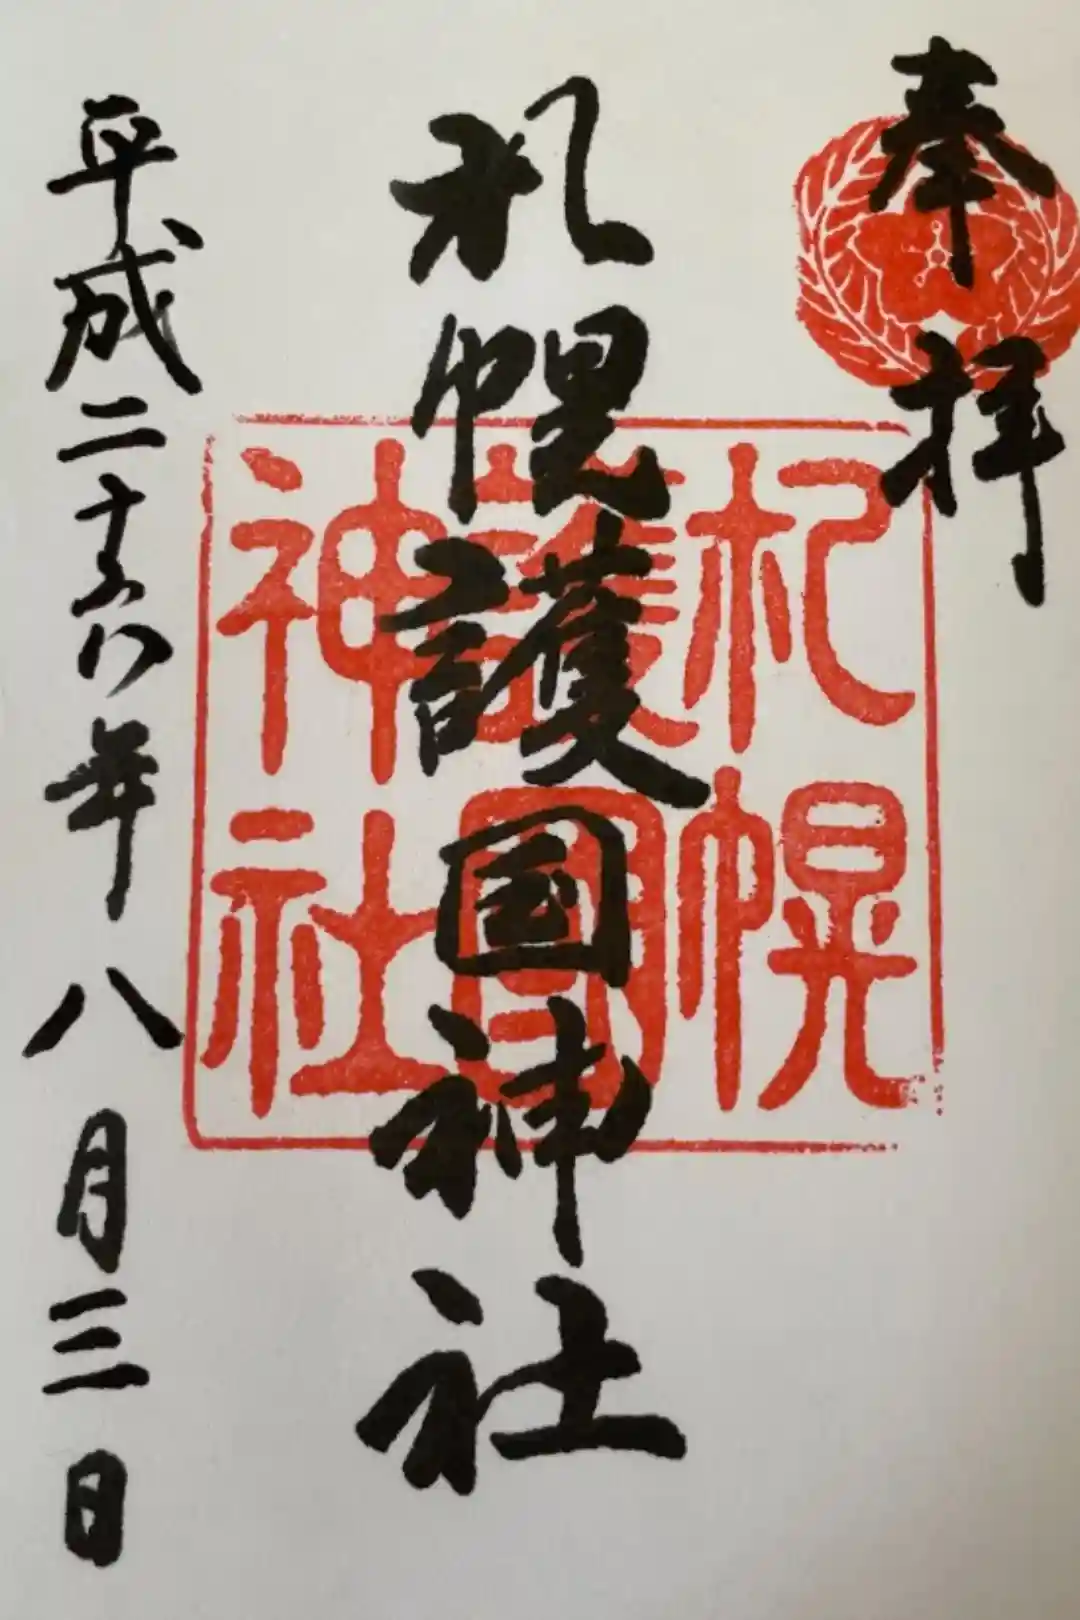 奉拝
札幌護国神社
平成二十六年八月三日
札幌
護國
神社